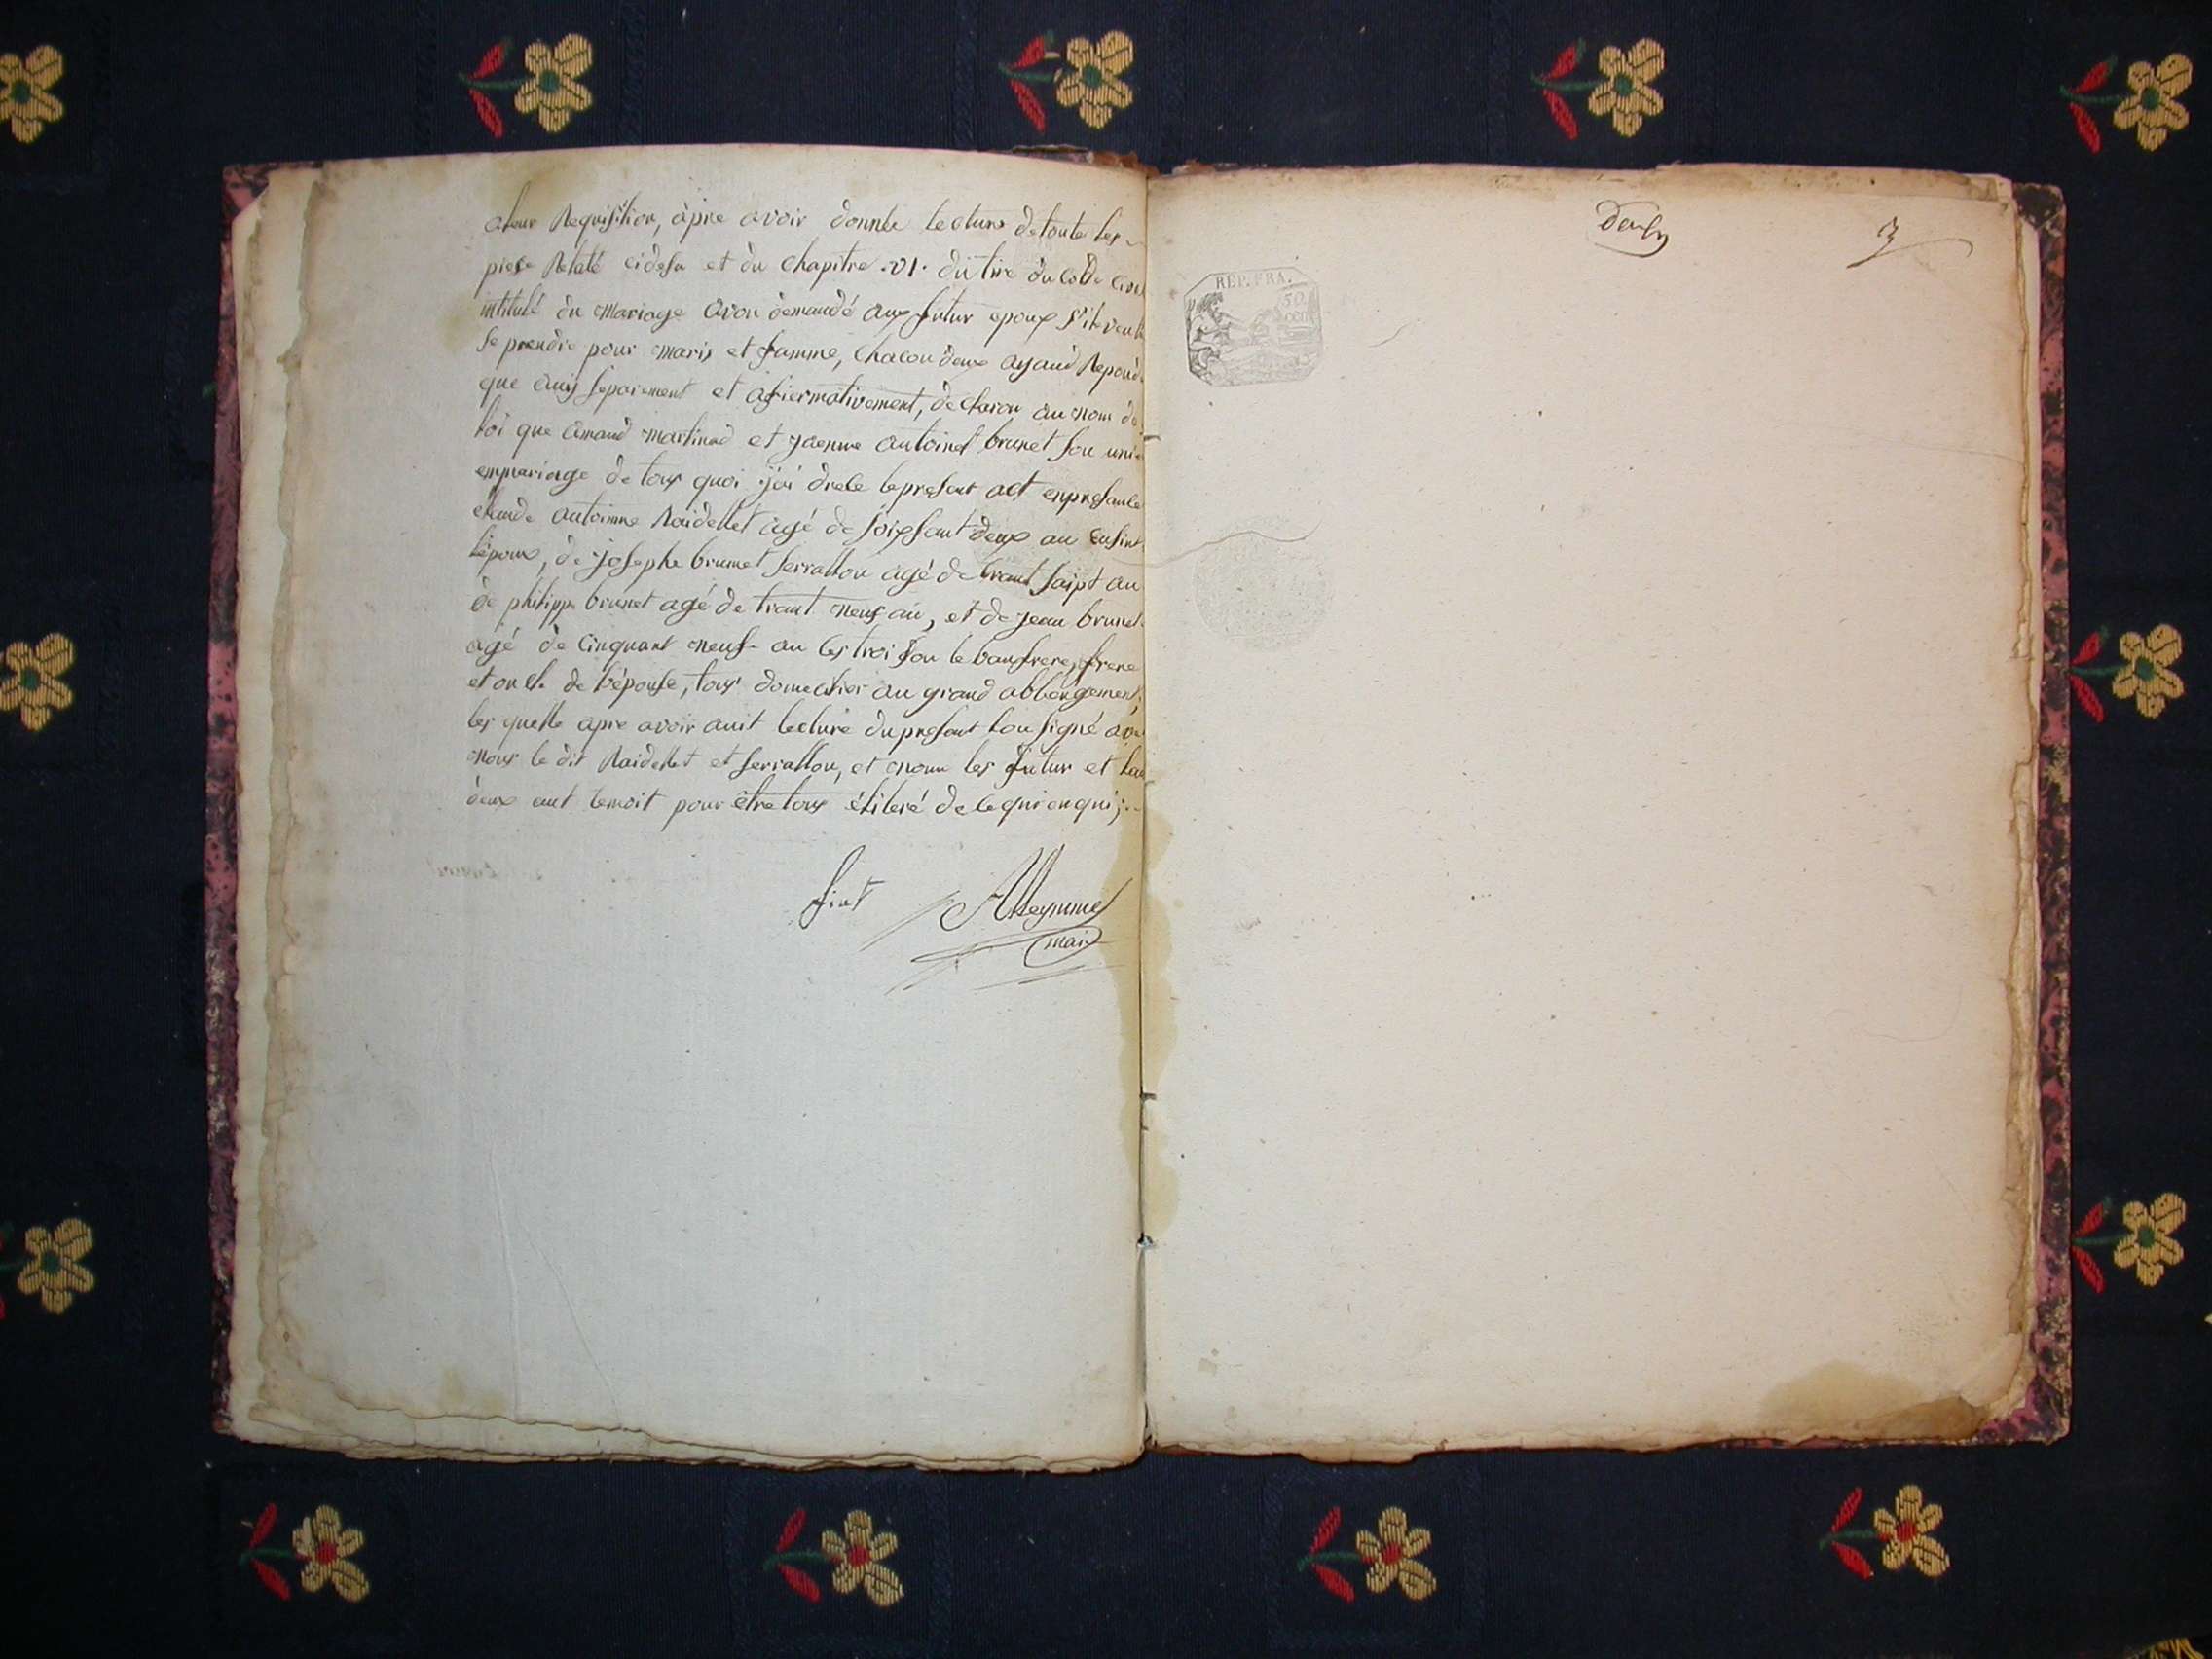 aleur Requisition, àpre avoir donnée lecture detoute les
piese Relaté cidesu et du Chapitre .VI. du titre du Code Civil
intitulé du Mariage avon demandé aux futur epoux s'ile veul
se prendre pour maris et famme, Chacon deux ayand Repond
que ouis separement et afiermativement, declaron au nom de
loi que amand martinad et jaenne antoinet brunet son unie
emmariage de tous quoi j'ai drese le present act enpresance
claude antoinne Raidellet agé de soixsant deux an cusint
l'époux, de josephe brunet serrallon agé de trant saipt an
de philippe brunet agé de trant neuf an, et de jean brunet
agé de cinquant neuf an les troi son le baufrere, frere
et oncle de l'épouse, tous domecilier au grand abbergement;
les quelle apre avoir auit lecture du presant son signé ave
nous le dit Raidellet et serrallon, et nonn les futur et les
deux aut temoit pour être tous éliteré de ce qui on qui;
fint
maire
REP. FRA.
50
3